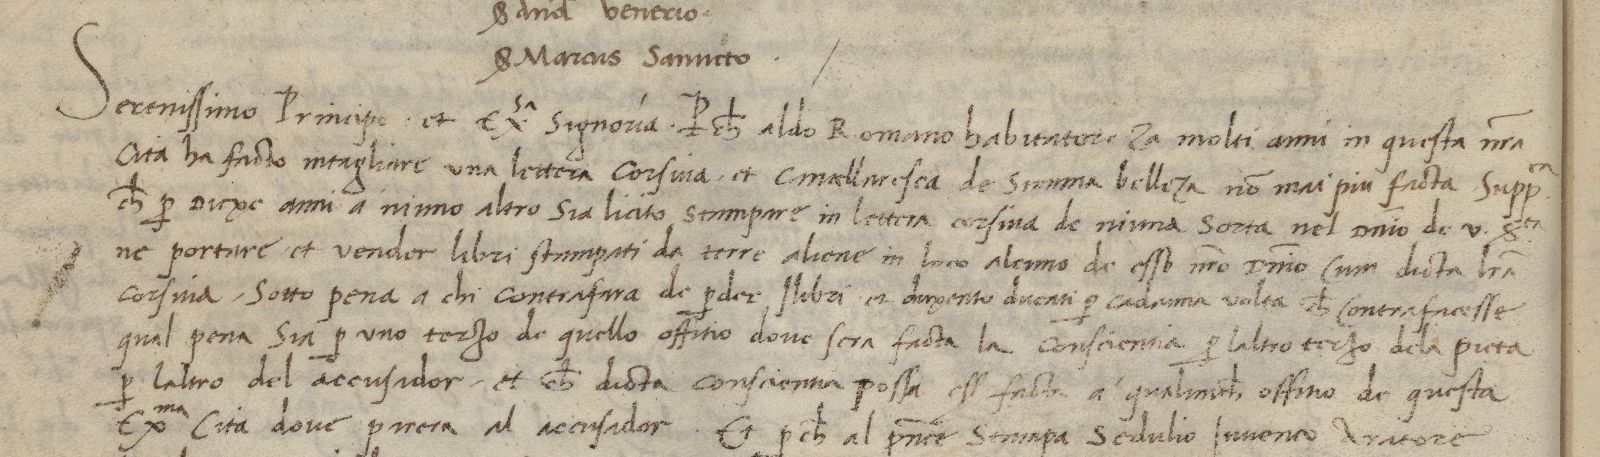 S And Venerio.
S Marcus Sanucto.
Serenissimo Principe. et Exa Signoria. Perch aldo Romano habitatore za molti anni in questa nra
Cita ha facto intagliare una lettera Corsiva. et Cancellaresca de Summa belleza non mai piu facta. Suppca
ch per Diexe anni a niuno altro Sia licito Stampare in lettera corsiva de niuna Sorta nel Dnio de v. Sta
ne portare et vender libri stampati da terre aliene in loco alcuno de esso nro Dnio Cum dicta lra
corsiva. Sotto pena a chi Contrafara de perder I libri. et duxento ducati per cadauna volta ch Contrafacesse
qual pena Sia per uno terzo de quello offitio dove sera facta la Conscientia per laltro terzo dela pieta
per laltro del accusador. et ch dicta Conscientia possa ess facta a qualunch offitio de questa
Exma Cita dove parera al accusador. Et perch al pnte Stampa Sedulio Iuvenco Aratore